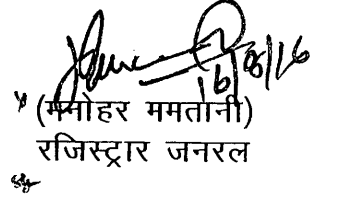 16/08/16
(मनोहर ममतानी)
रजिस्ट्रार जनरल